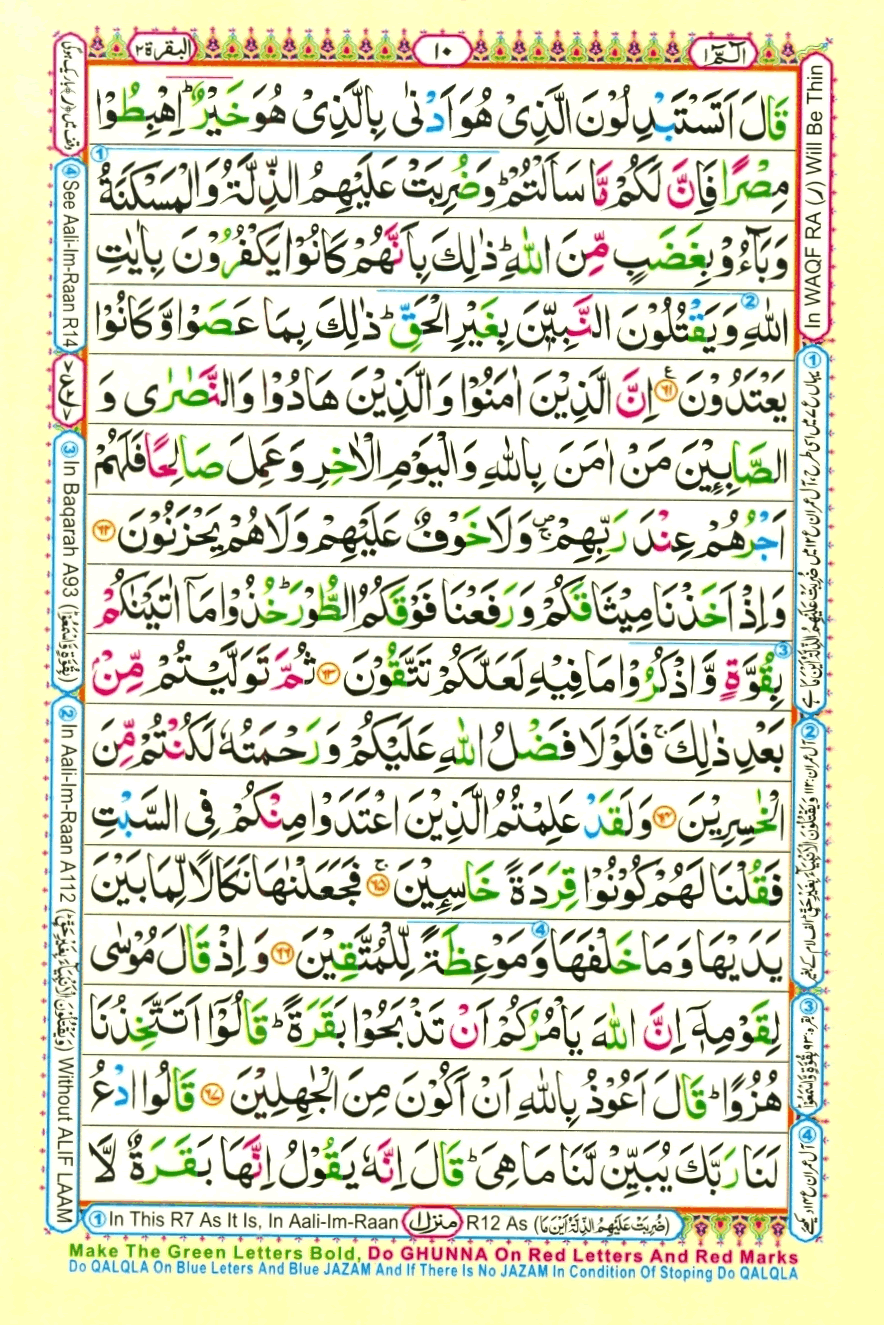 البقرة ٢
١٠
الٓمّٓ ١
قَالَ اَتَسْتَبْدِلُوْنَ الَّذِیْ هُوَ اَدْنٰی بِالَّذِیْ هُوَ خَیْرٌ ؕ اِهْبِطُوْا
مِصْرًا فَاِنَّ لَكُمْ مَّا سَاَلْتُمْ ؕ وَضُرِبَتْ عَلَیْهِمُ الذِّلَّةُ وَالْمَسْكَنَةُ
وَبَآءُوْ بِغَضَبٍ مِّنَ اللّٰهِ ؕ ذٰلِكَ بِاَنَّهُمْ كَانُوْا یَكْفُرُوْنَ بِاٰیٰتِ
اللّٰهِ وَیَقْتُلُوْنَ النَّبِیّٖنَ بِغَیْرِ الْحَقِّ ؕ ذٰلِكَ بِمَا عَصَوْا وَّكَانُوْا
یَعْتَدُوْنَ ۧ ٦١ اِنَّ الَّذِیْنَ اٰمَنُوْا وَالَّذِیْنَ هَادُوْا وَالنَّصٰرٰی وَ
الصَّابِـِٕیْنَ مَنْ اٰمَنَ بِاللّٰهِ وَالْیَوْمِ الْاٰخِرِ وَعَمِلَ صَالِحًا فَلَهُمْ
اَجْرُهُمْ عِنْدَ رَبِّهِمْ ۪ۚ وَلَا خَوْفٌ عَلَیْهِمْ وَلَا هُمْ یَحْزَنُوْنَ ٦٢
وَاِذْ اَخَذْنَا مِیْثَاقَكُمْ وَرَفَعْنَا فَوْقَكُمُ الطُّوْرَ ؕ خُذُوْا مَاۤ اٰتَیْنٰكُمْ
بِقُوَّةٍ وَّاذْكُرُوْا مَا فِیْهِ لَعَلَّكُمْ تَتَّقُوْنَ ٦٣ ثُمَّ تَوَلَّیْتُمْ مِّنْۢ
بَعْدِ ذٰلِكَ ۚ فَلَوْلَا فَضْلُ اللّٰهِ عَلَیْكُمْ وَرَحْمَتُهٗ لَكُنْتُمْ مِّنَ
الْخٰسِرِیْنَ ٦٤ وَلَقَدْ عَلِمْتُمُ الَّذِیْنَ اعْتَدَوْا مِنْكُمْ فِی السَّبْتِ
فَقُلْنَا لَهُمْ كُوْنُوْا قِرَدَةً خَاسِـِٕیْنَ ۚ ٦٥ فَجَعَلْنٰهَا نَكَالًا لِّمَا بَیْنَ
یَدَیْهَا وَمَا خَلْفَهَا وَمَوْعِظَةً لِّلْمُتَّقِیْنَ ٦٦ وَاِذْ قَالَ مُوْسٰی
لِقَوْمِهٖۤ اِنَّ اللّٰهَ یَاْمُرُكُمْ اَنْ تَذْبَحُوْا بَقَرَةً ؕ قَالُوْۤا اَتَتَّخِذُنَا
هُزُوًا ؕ قَالَ اَعُوْذُ بِاللّٰهِ اَنْ اَكُوْنَ مِنَ الْجٰهِلِیْنَ ٦٧ قَالُوا ادْعُ
لَنَا رَبَّكَ یُبَیِّنْ لَّنَا مَا هِیَ ؕ قَالَ اِنَّهٗ یَقُوْلُ اِنَّهَا بَقَرَةٌ لَّا
In WAQF RA (ر) Will Be Thin
④ See Aali-Im-Raan R14
③ In Baqarah A93 (بِقُوَّةٍ وَّاسْمَعُوْا)
② In Aali-Im-Raan A112 (وَيَقْتُلُوْنَ الْاَنْۢبِيَآءَ بِغَيْرِ حَقٍّ) Without ALIF LAAM
① In This R7 As It Is, In Aali-Im-Raan منزل ١ R12 As (ضُرِبَتْ عَلَیْهِمُ الذِّلَّةُ اَیْنَ مَا)
Make The Green Letters Bold, Do GHUNNA On Red Letters And Red Marks
Do QALQLA On Blue Leters And Blue JAZAM And If There Is No JAZAM In Condition Of Stoping Do QALQLA